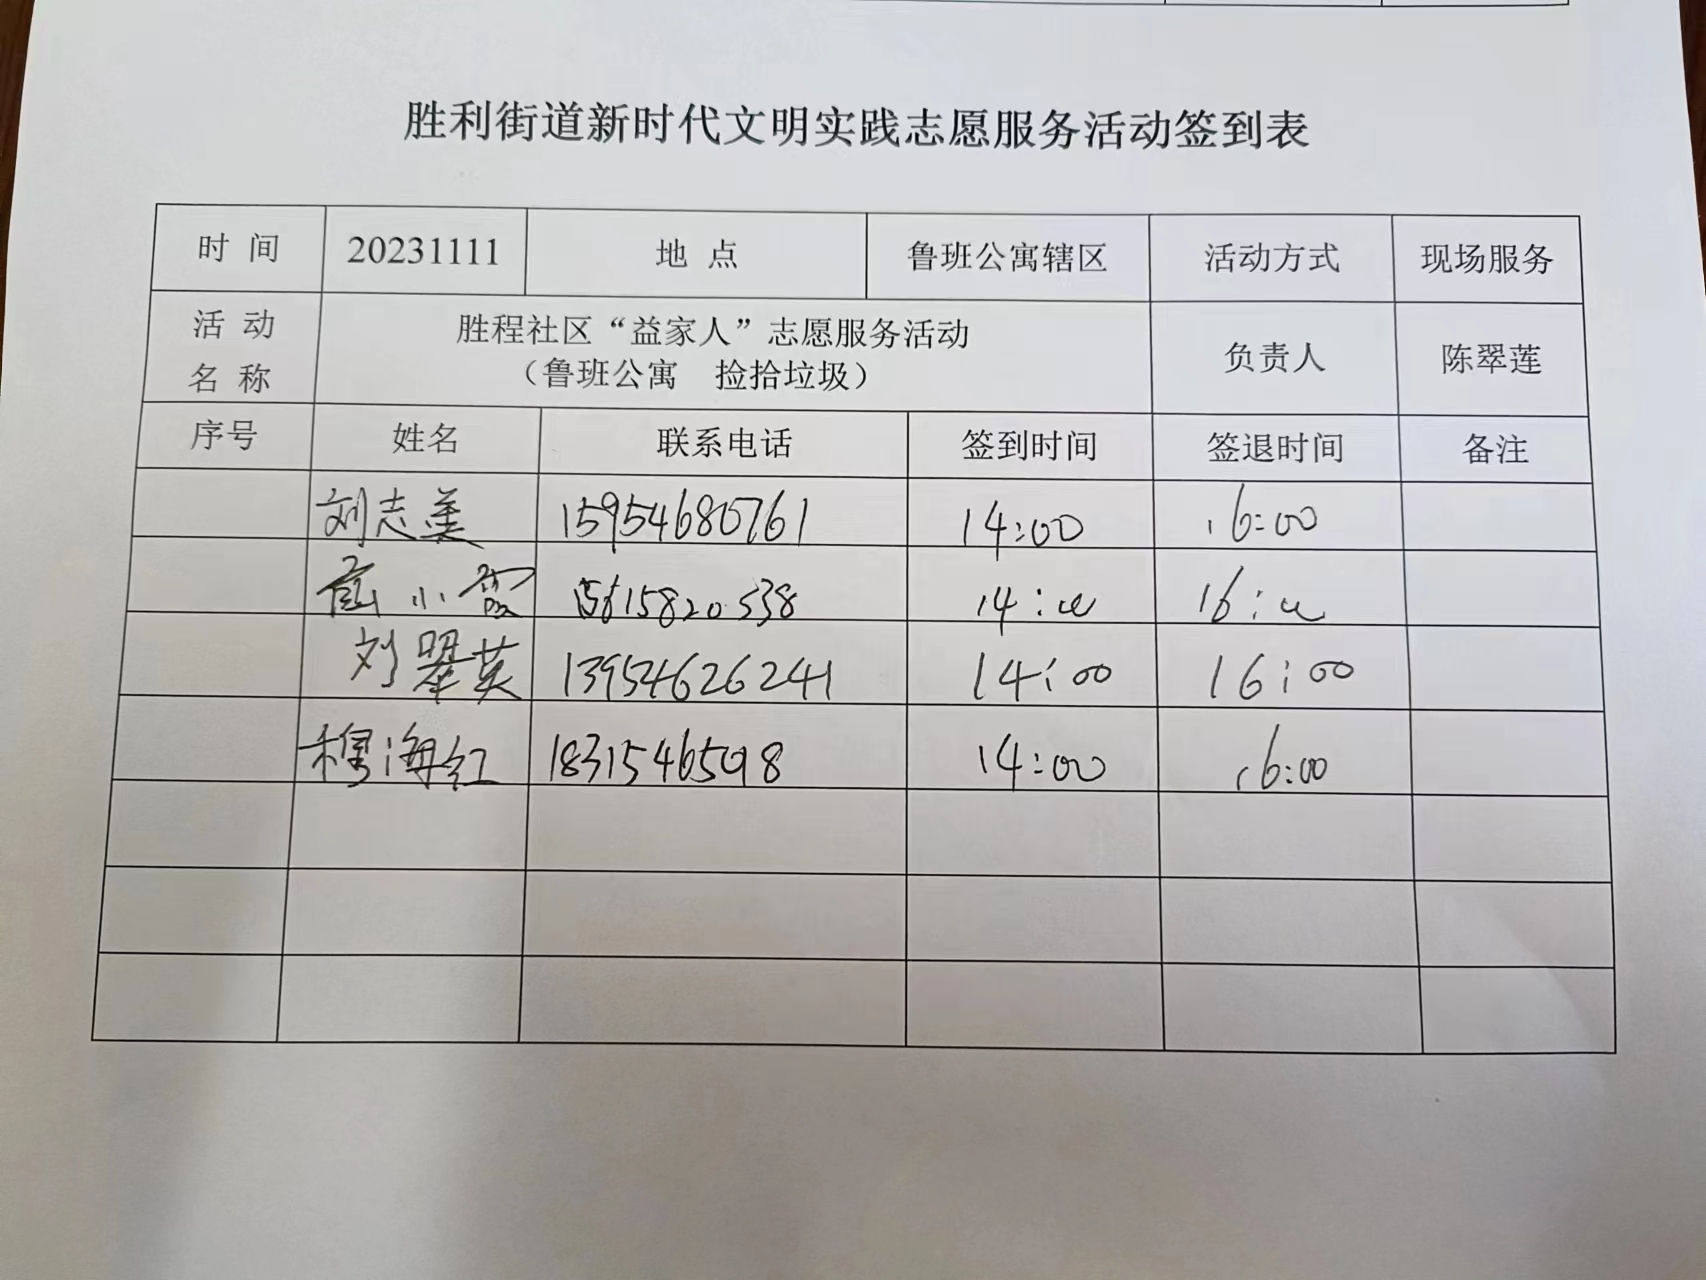 胜利街道新时代文明实践志愿服务活动签到表
时间 20231111 地点 鲁班公寓辖区 活动方式 现场服务
活动名称 胜程社区“益家人”志愿服务活动
（鲁班公寓 捡拾垃圾） 负责人 陈翠莲
序号 姓名 联系电话 签到时间 签退时间 备注
刘志美 15954680761 14:00 16:00
小霞 15615820538 14:00 16:00
刘翠英 13954626241 14:00 16:00
穆海红 18315465098 14:00 16:00